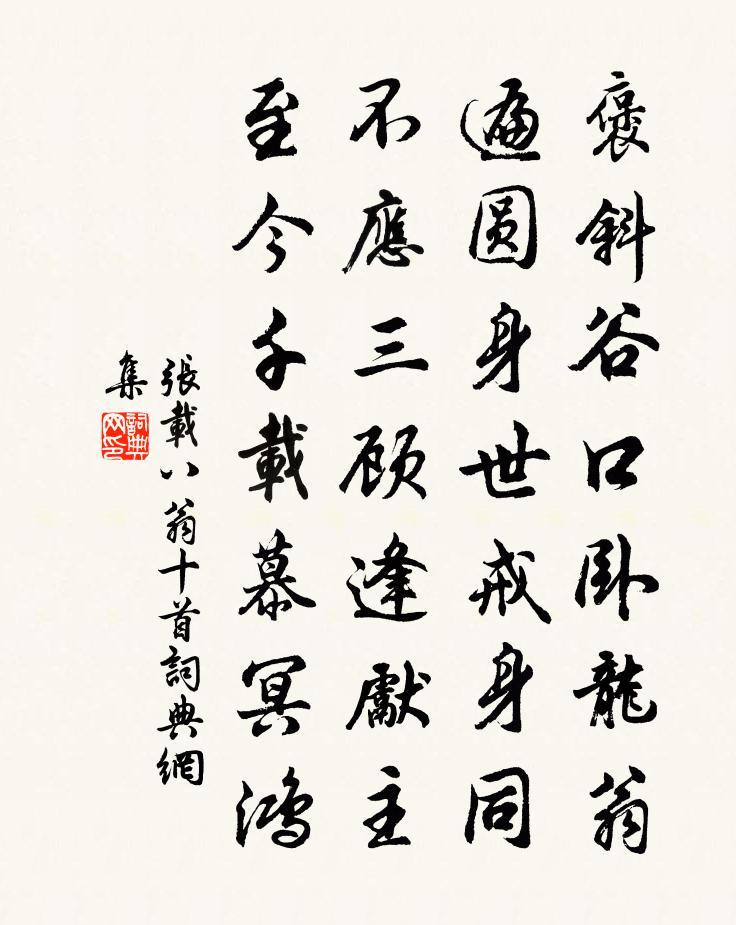 褒斜谷口卧龍翁
遍圓身世戒身同
不應三顾逢獻主
至今千載慕冥鴻
張載八翁十首詞典網
集
詞典网印